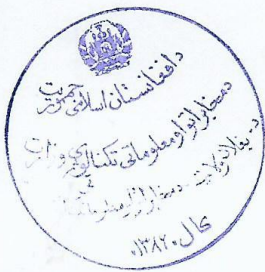 د افغانستان اسلامی جمهوریت
د مخابراتو او معلوماتی تکنالوژی وزارت
د بغلان ولایت د مخابراتو او معلوماتی
کال ۱۳۸۲